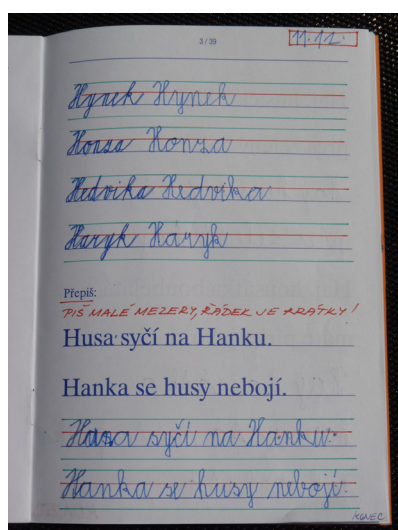 3 / 39
11.12.
Hynek Hynek
Honza Honza
Hedvika Hedvika
Haryk Haryk
Přepiš:
PIŠ MALÉ MEZERY, ŘÁDEK JE KRÁTKÝ!
Husa syčí na Hanku.
Hanka se husy nebojí.
Husa syčí na Hanku.
Hanka se husy nebojí.
KONEC